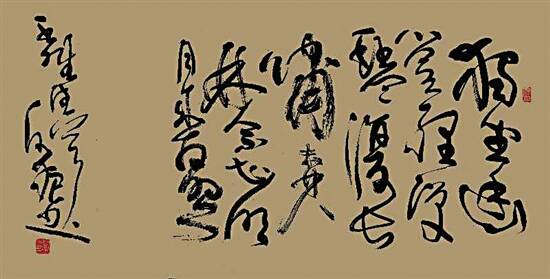 獨坐幽
篁裡彈
琴復長
嘯深
林人不知明
月來相照
王維詩